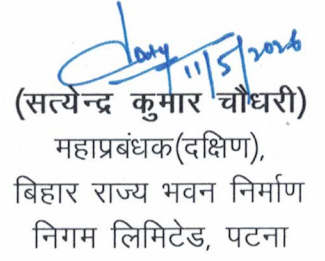 11/5/2026
(सत्येन्द्र कुमार चौधरी)
महाप्रबंधक(दक्षिण),
बिहार राज्य भवन निर्माण
निगम लिमिटेड, पटना